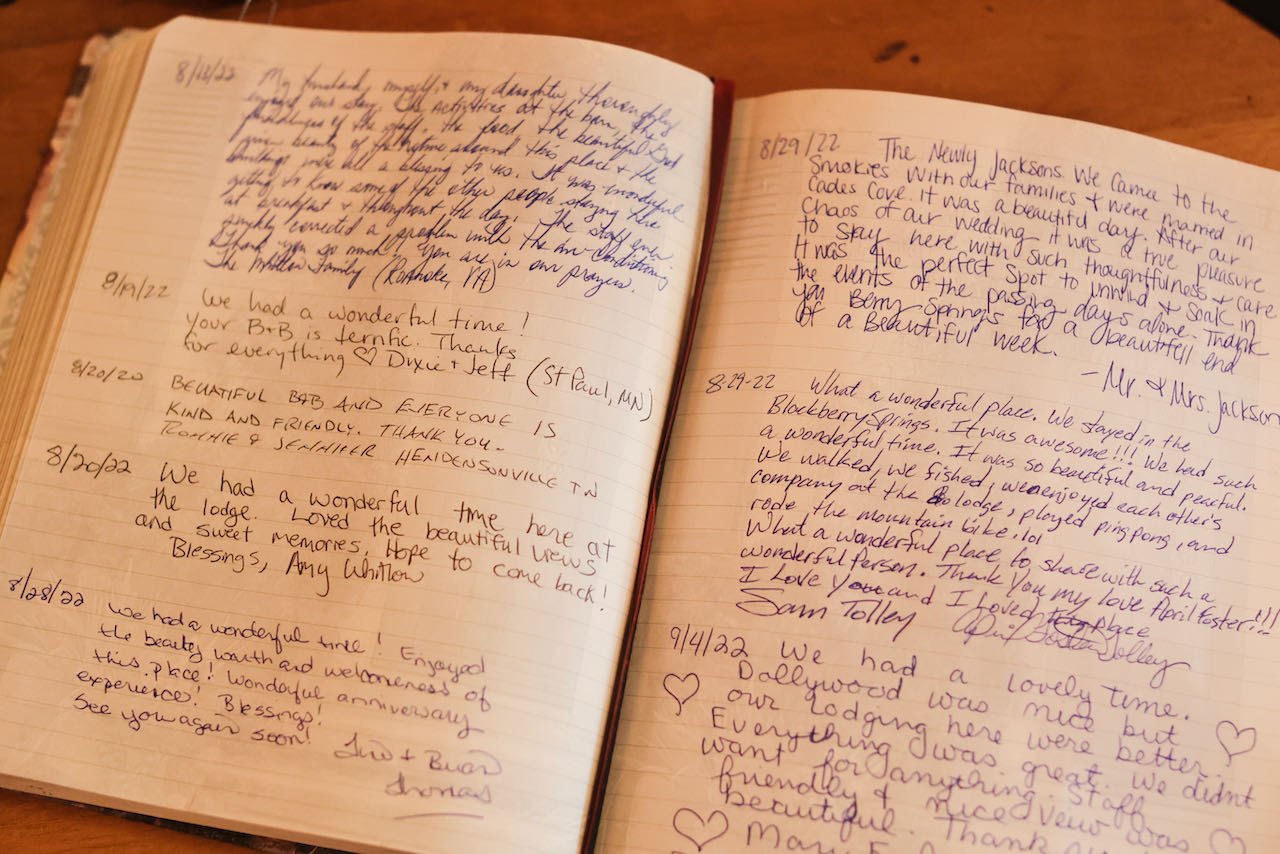 8/18/22 My husband, myself & my daughter thoroughly
enjoyed our stay. The activities at the barn, the
friendliness of the staff, the food, the beautiful God
given beauty of the nature around this place & the
buildings were all a blessing to us. It was wonderful
getting to know some of the other people staying here
at breakfast & throughout the day. The staff even
quickly corrected a problem with the air conditioning
Thank you so much, you are in our prayers.
The Whitlow Family (Roanoke, VA)
8/19/22 We had a wonderful time!
your B+B is terrific. Thanks
for everything ♡ Dixie + Jeff (St Paul, MN)
8/20/20 BEUATIFUL B&B AND EVERYONE IS
KIND AND FRIENDLY. THANK YOU.
RONNIE & JENNIFER HENDENSONVILLE TN
8/20/22 We had a wonderful time here at
the lodge. Loved the beautiful views
and sweet memories. Hope to come back!
Blessings, Amy Whitlow
8/28/22 We had a wonderful time! Enjoyed
the beauty, warth and welcomeness of
this place! Wonderful anniversary
experience! Blessings!
See you again soon!
+ Brian
Thomas
8/29/22 The Newly Jacksons. We came to the
Smokies with our families & were married in
Cades Cove. It was a beautiful day. After our
chaos of our wedding it was a true pleasure
to stay here with such thoughtfulness & care
It was the perfect spot to unwind & soak in
the events of the passing days alone. Thank
you Berry Springs for a beautifull end
of a Beautiful week.
- Mr. & Mrs. Jackson
8-29-22 What a wonderful place. We stayed in the
Blackberry Springs. It was awesome!!! We had such
a wonderful time. It was so beautiful and peaceful.
We walked, we fished, we enjoyed each other's
company at the lodge, played ping pong, and
rode the mountain bike. lol
What a wonderful place to share with such a
wonderful person. Thank you my love April Foster!!!
I Love You and I Loved place
Sam Tolley April Foster Tolley
9/4/22 We had a lovely time.
Dollywood was nice but
our lodging here were better.
Everything was great. We didnt
want for anything. Staff
friendly & nice view was
beautiful. Thank